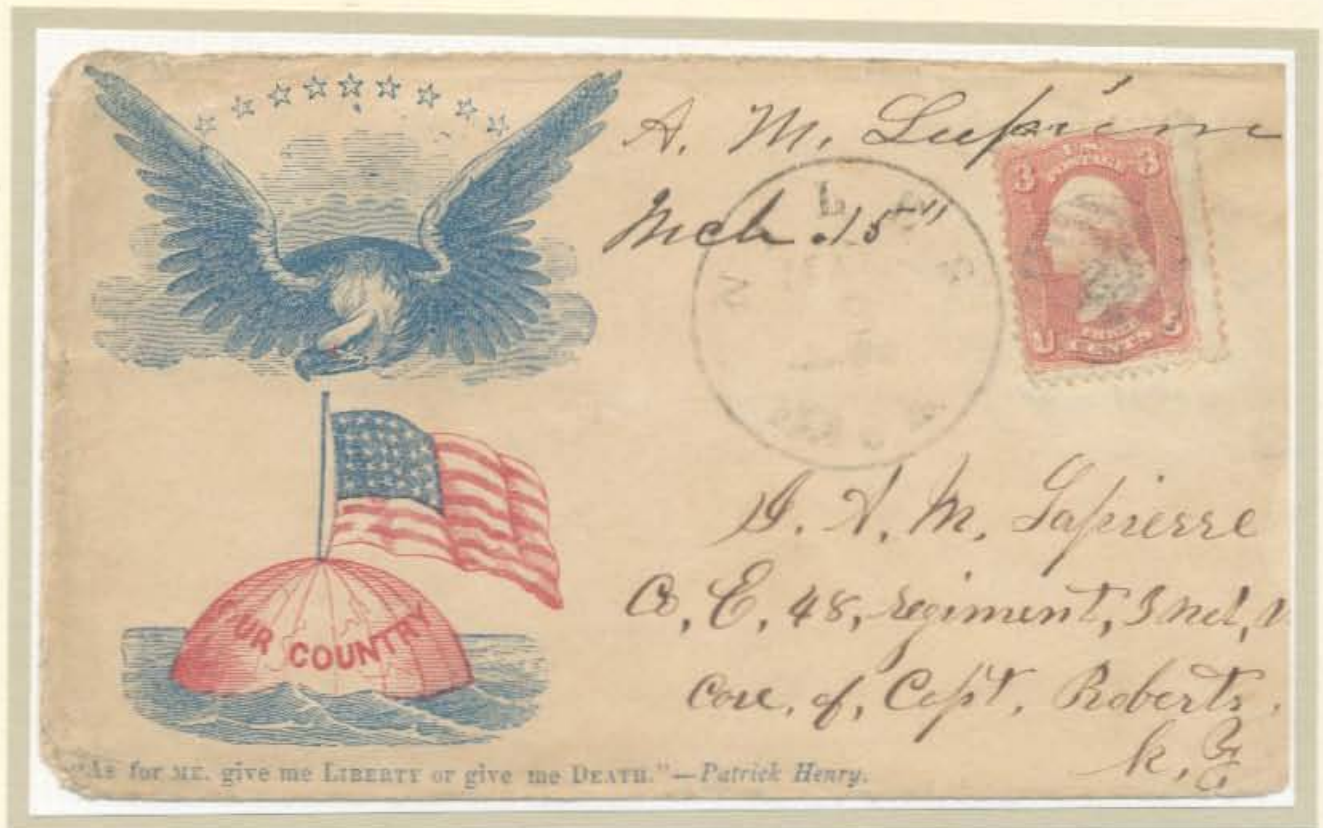 A. M. Lapierre
Mch. 15"
U.S. POSTAGE
3 3
THREE
CENTS
J. A. M. Lapierre
Co, E, 48, regiment, Ind, V
Care, of, Capt, Roberts,
OUR COUNTRY
"As for ME, give me LIBERTY or give me DEATH."—Patrick Henry.